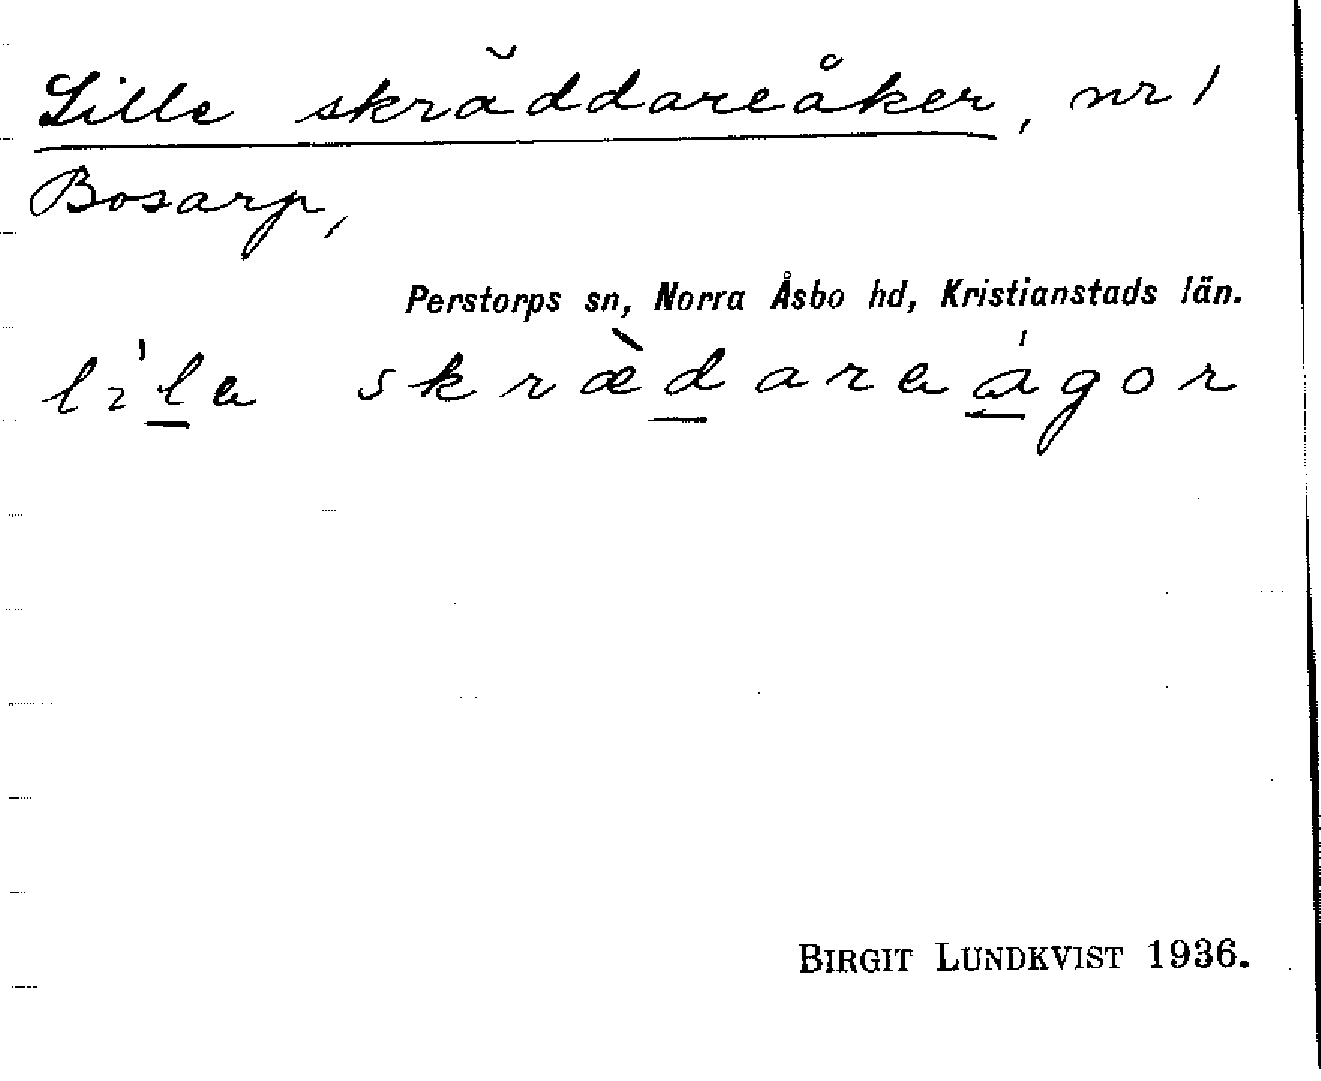 Lille skräddareåker, nr 1
Bosarp,
Perstorps sn, Norra Åsbo hd, Kristianstads län.
lila skrædaraágor
BIRGIT LUNDKVIST 1936.